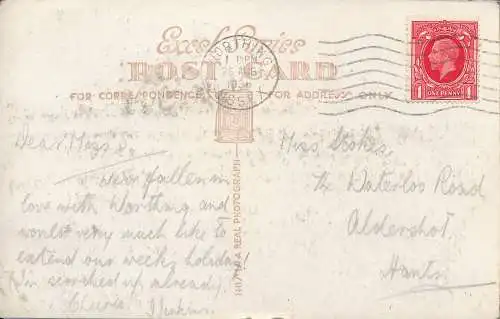 Excel Series
POST CARD
FOR CORRESPONDENCE
FOR ADDRESS ONLY
WORTHING
1 PM
SUSSEX
ONE PENNY
THIS IS A REAL PHOTOGRAPH
Dear Miss S.,
We've fallen in
love with Worthing and
would very much like to
extend our week's holiday
(I'm scorched up already)
Cheerio,
Miss Stokes,
Waterloo Road
Aldershot
Hants